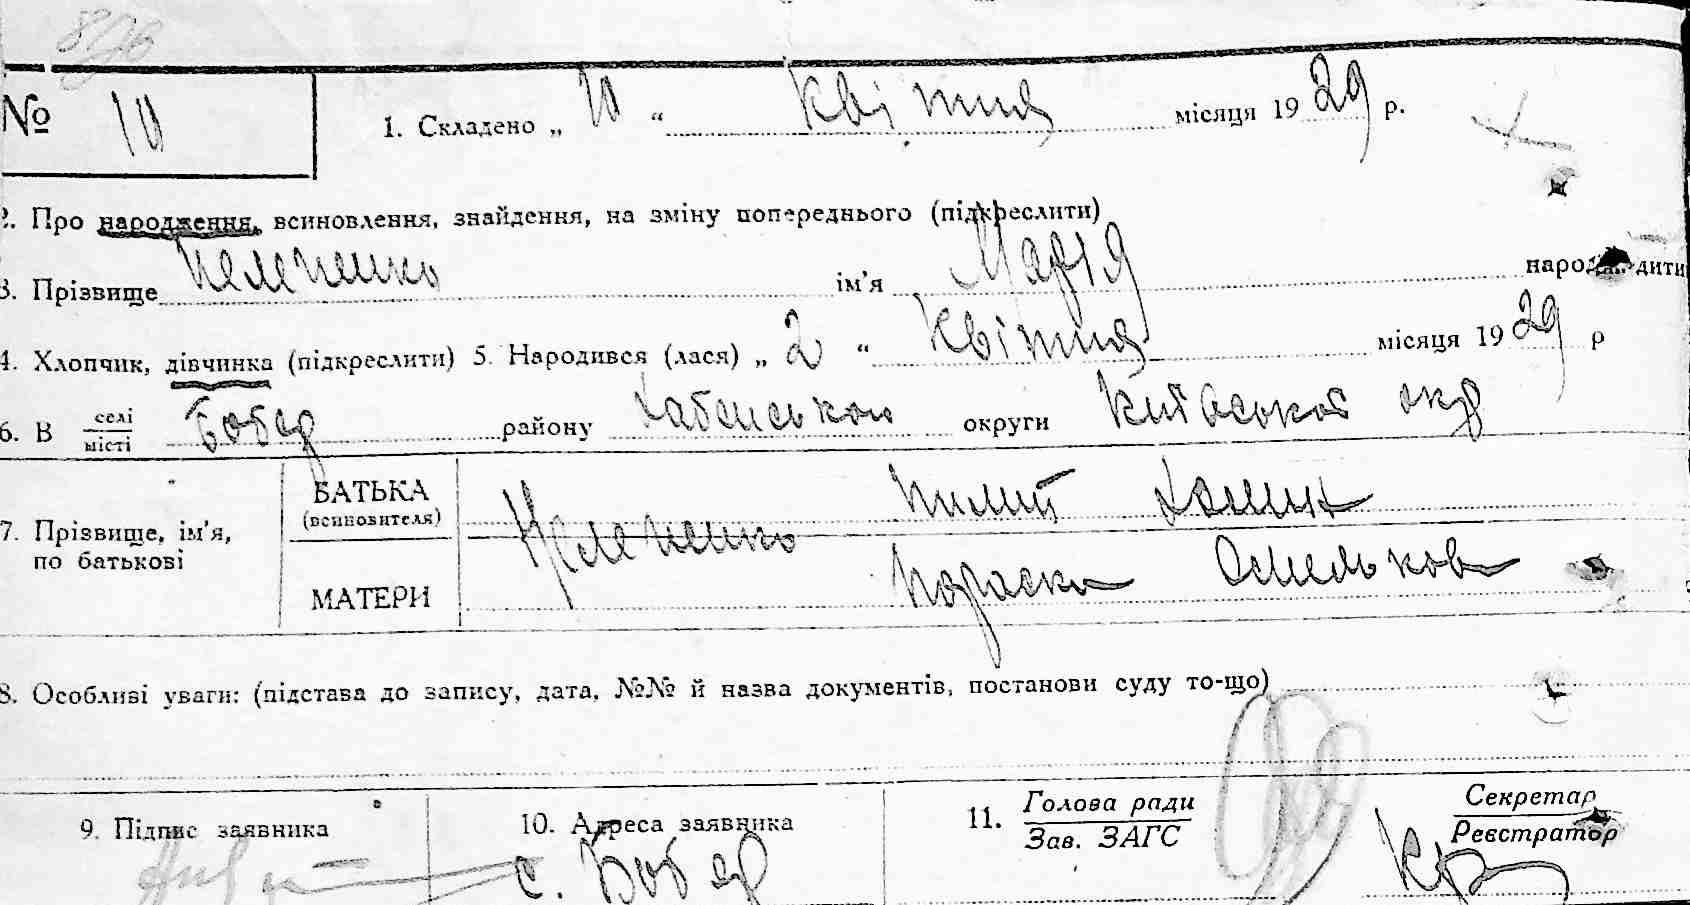 8176
№ 10
1. Складено „ 10 “ квітня місяця 1929 р.
2. Про народження, всиновлення, знайдення, на зміну попереднього (підкреслити)
3. Прізвище Пелепенко ім'я Марія народж. дити
4. Хлопчик, дівчинка (підкреслити) 5. Народився (лася) „ 2 “ Квітня місяця 1929 р
6. В селі/місті Бобер району Хабенської округи Київської окр
БАТЬКА
(всиновителя)
Пилип
7. Прізвище, ім'я,
по батькові
Пелепенко
МАТЕРИ
Параска Омелькова
8. Особливі уваги: (підстава до запису, дата, №№ й назва документів, постанови суду то-що)
9. Підпис заявника
10. Адреса заявника
с. Бобер
11. Голова ради
Зав. ЗАГС
Секретар
Реєстратор